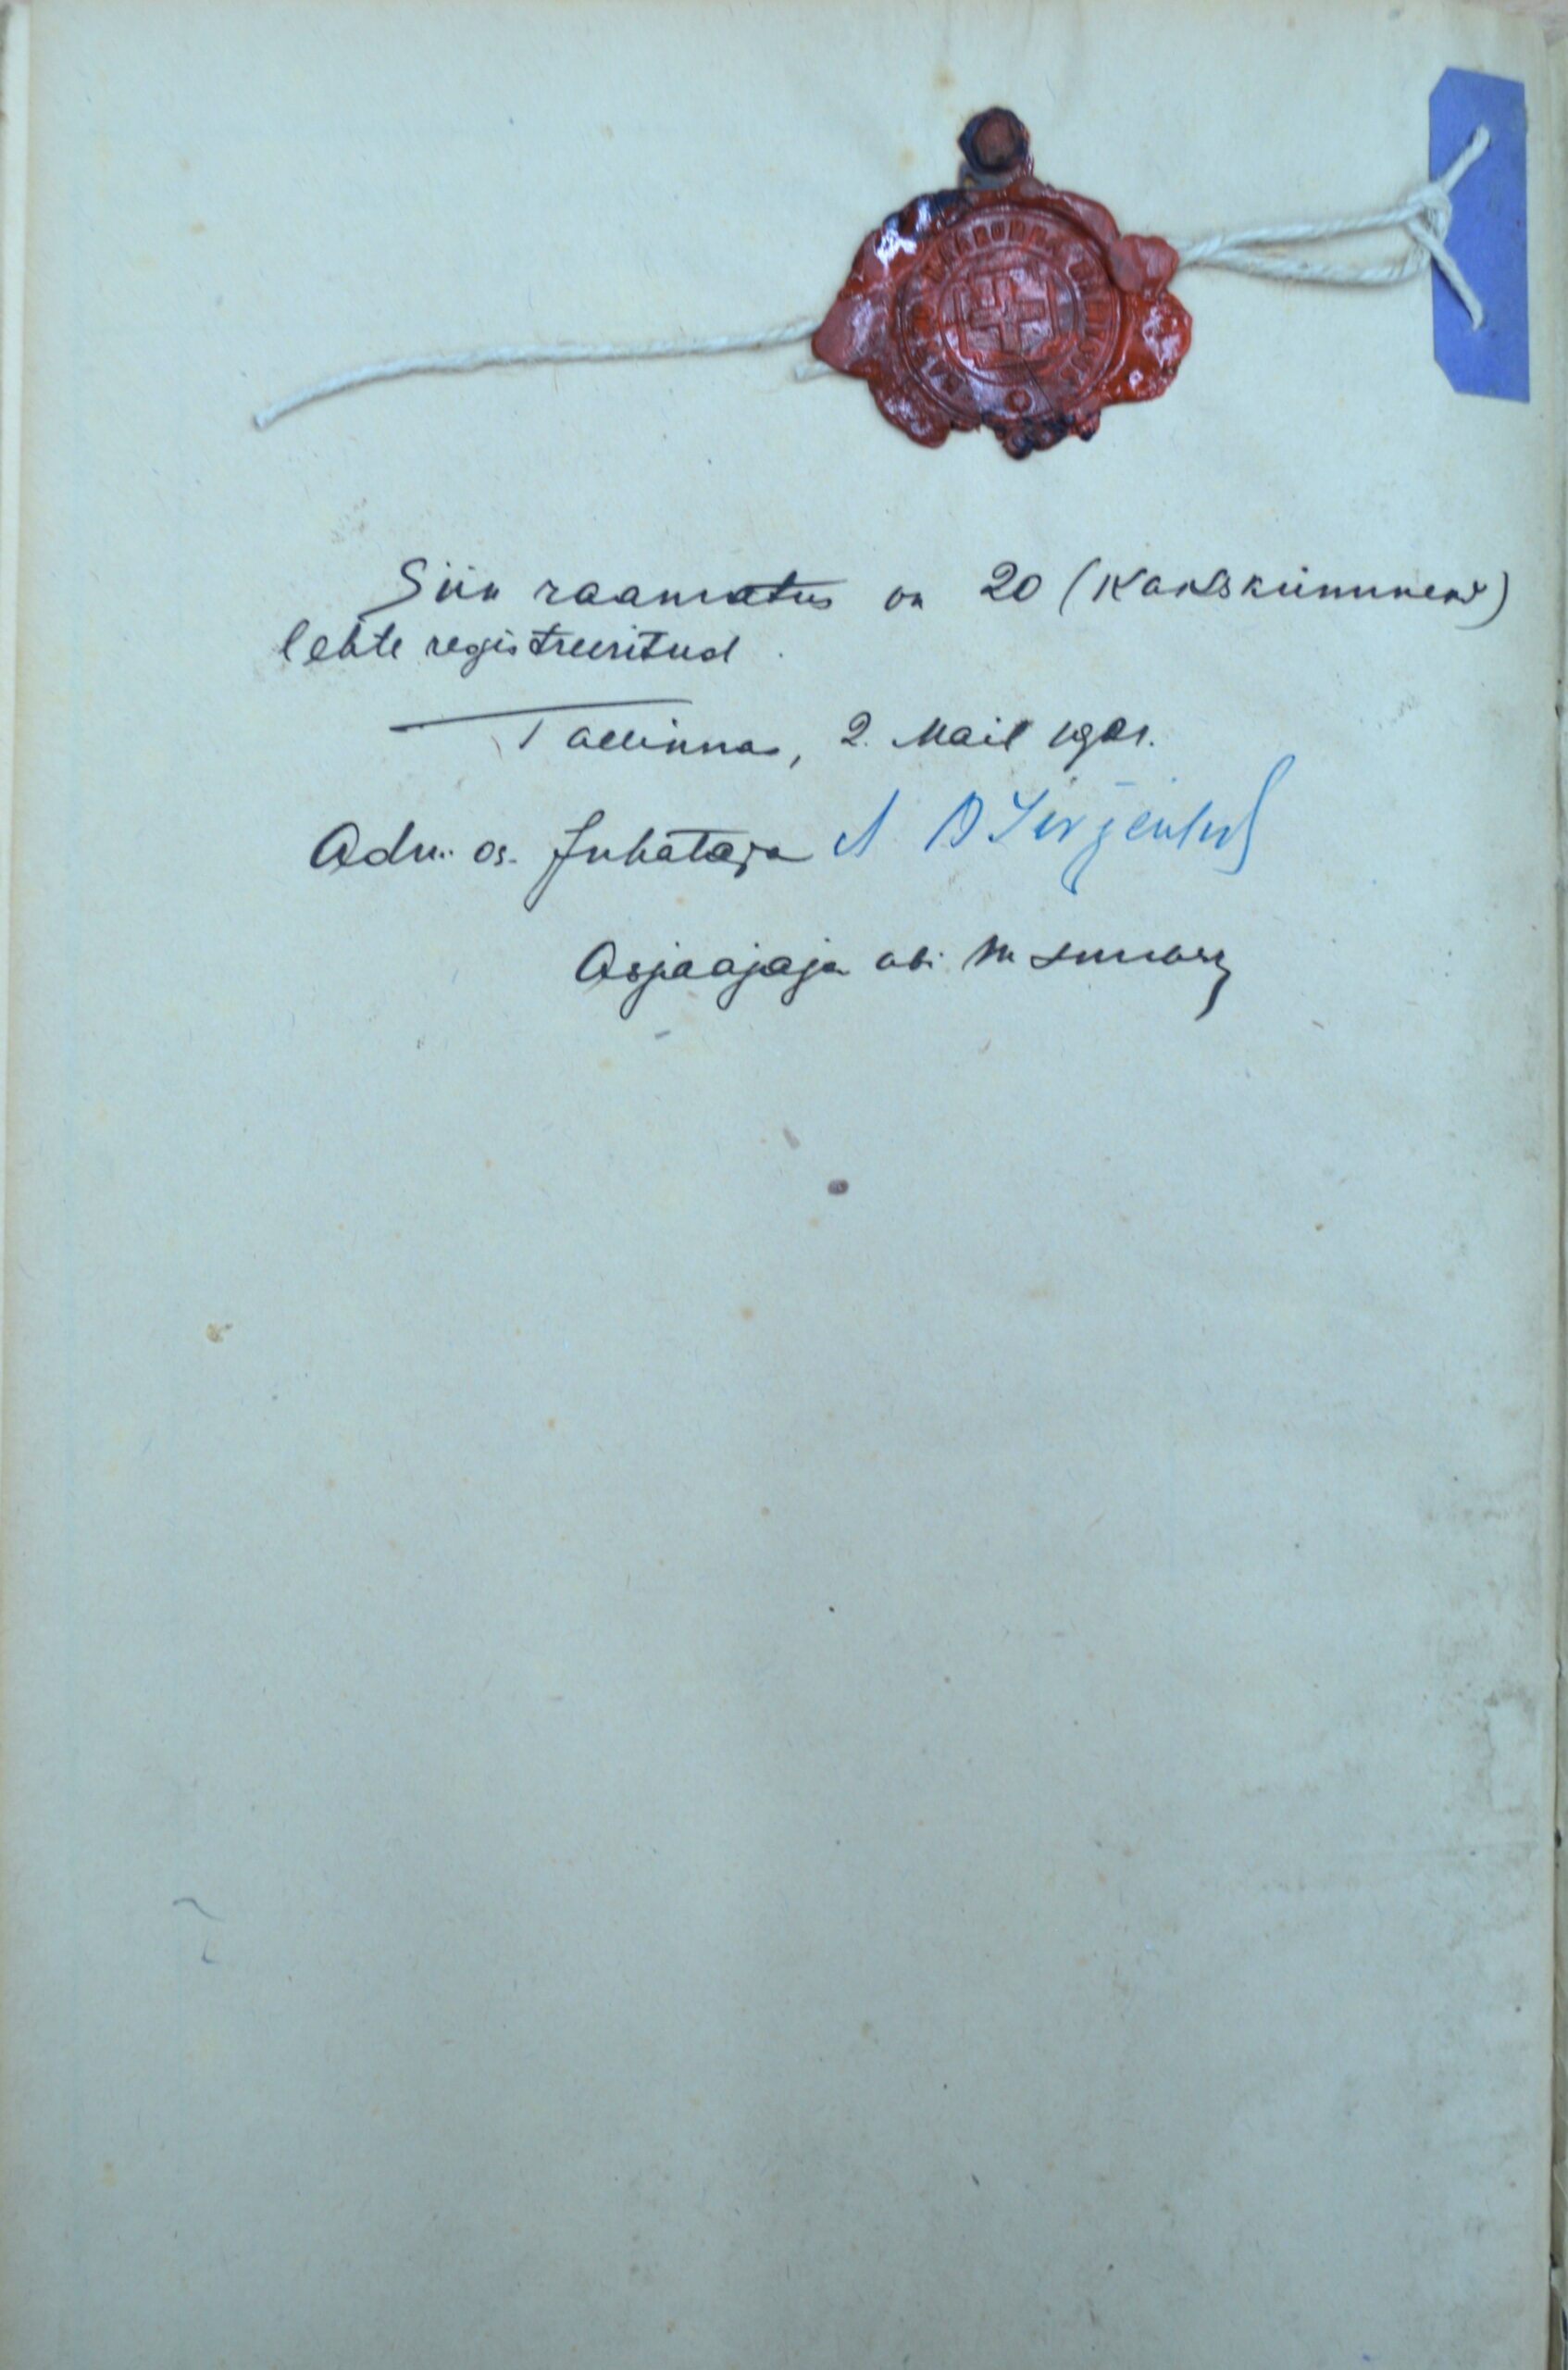 Siin raamatus on 20 (Kakskümmend)
lehte registreeritud.
Tallinnas, 2. Mail 1921.
Adm. os. Juhataja A
Asjaajaja abi M